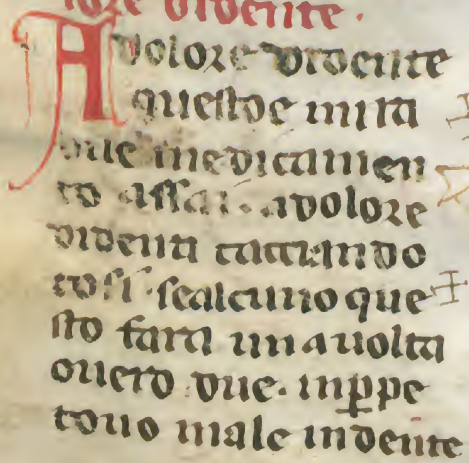 lore didente.
A dolore didente
questoe mira
bile medicamen
to assai. adolore
didenti cacciando
cosi. sealcuno que
sto fara una uolta
ouero due. inppe
touo male indente